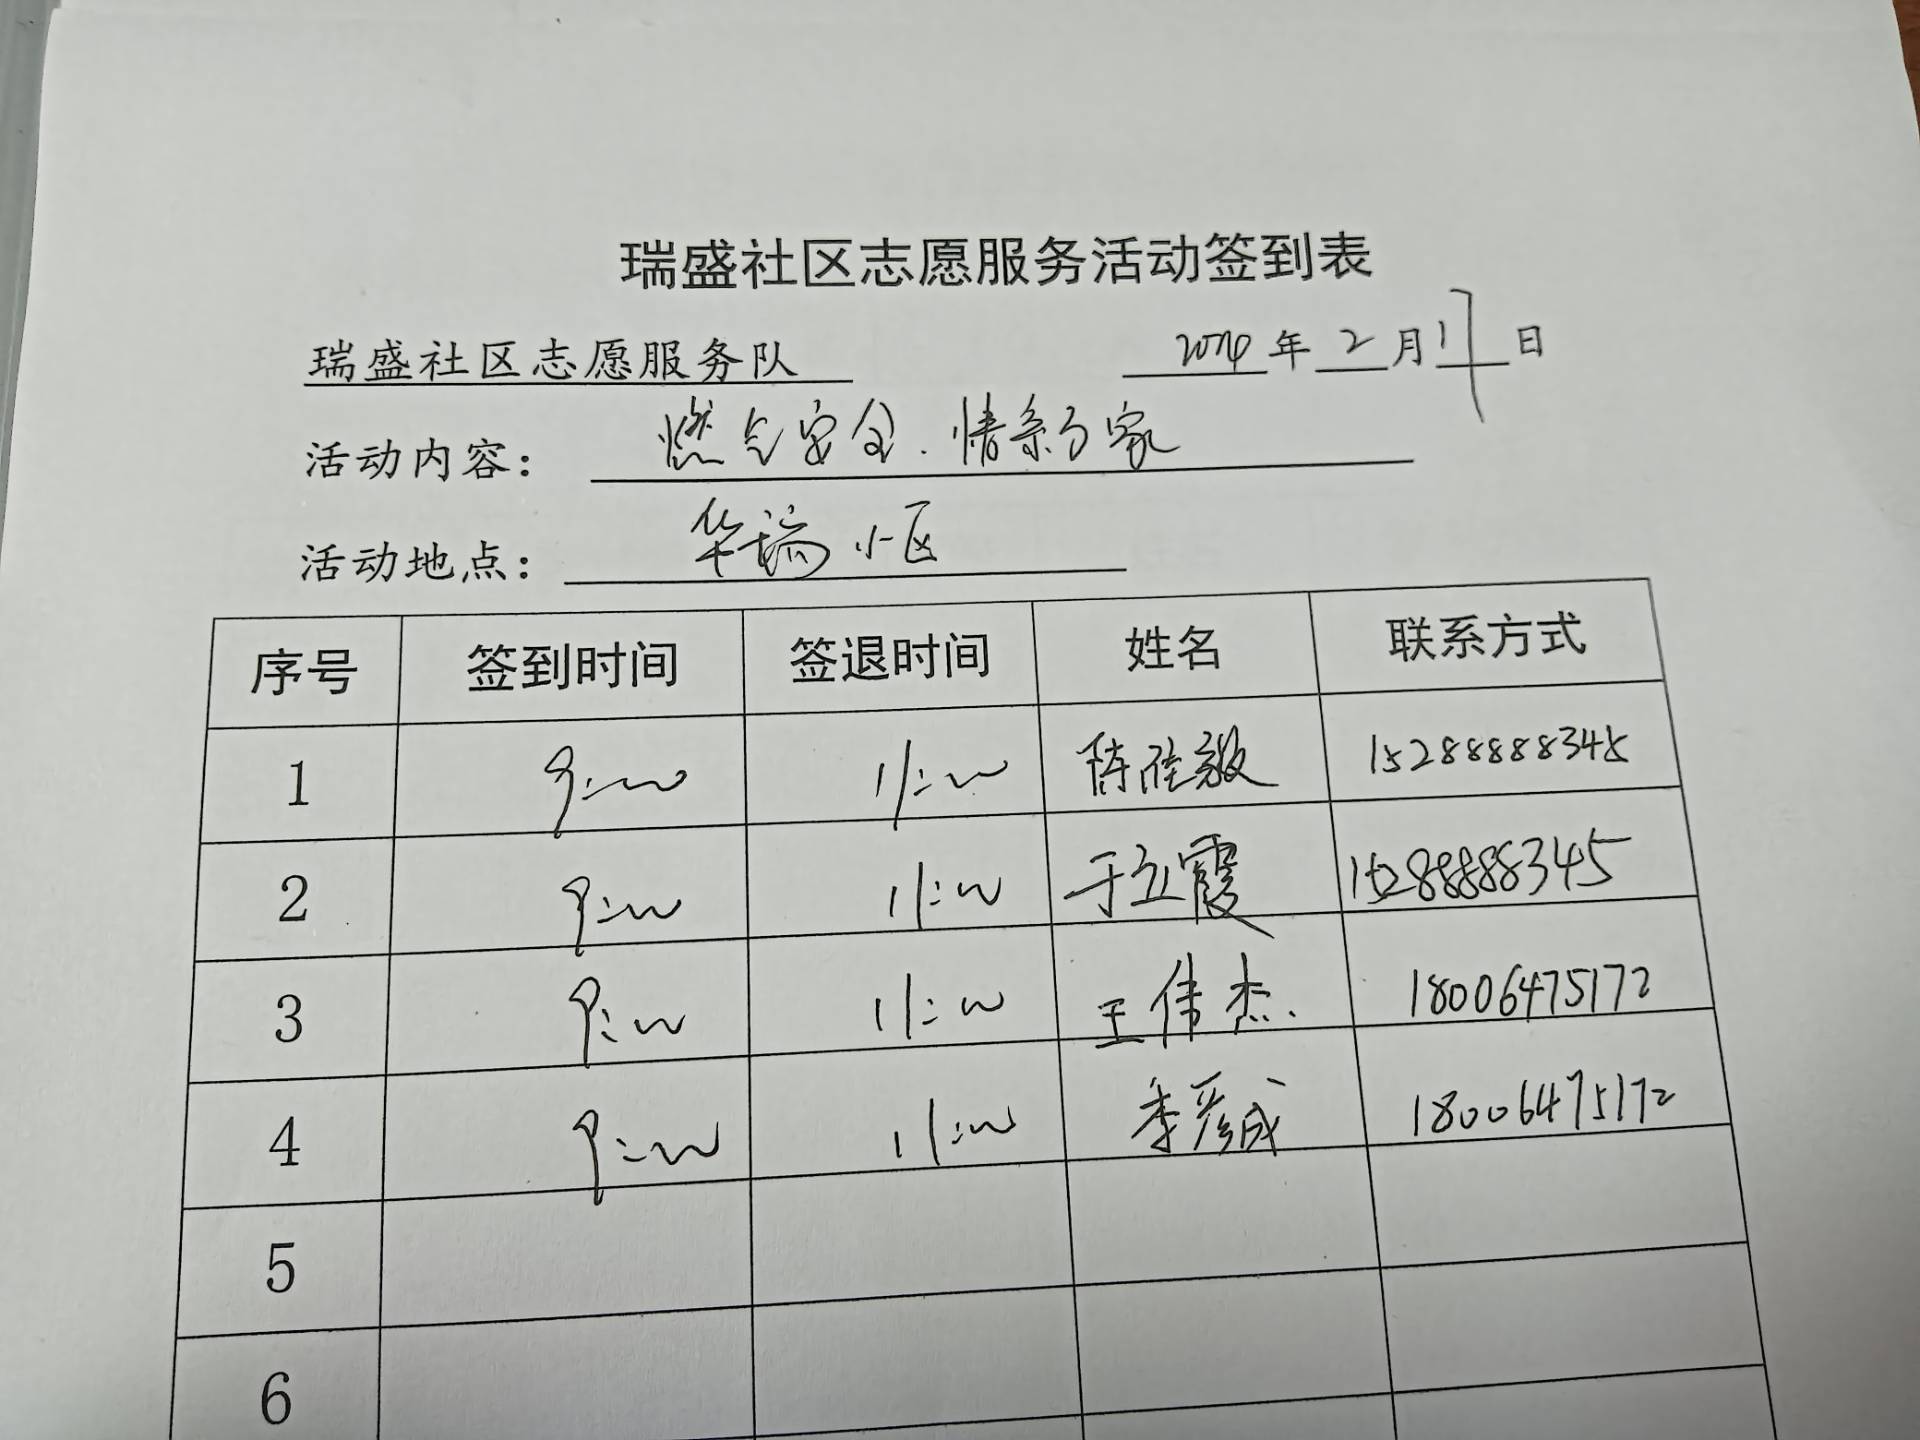 瑞盛社区志愿服务活动签到表
瑞盛社区志愿服务队 2024 年 2 月 17 日
活动内容： 燃气安全.情系万家
活动地点： 华瑞小区
序号 签到时间 签退时间 姓名 联系方式
1 9:00 11:00 陈 15288888345
2 9:00 11:00 于立霞 15288888345
3 9:00 11:00 王伟杰. 18006475172
4 9:00 11:00 李彦成 18006475172
5
6